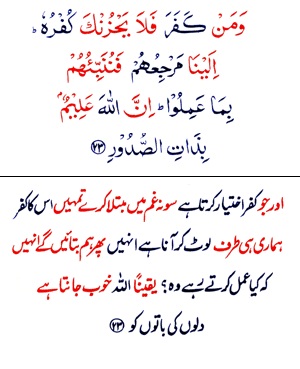 وَمَنْ كَفَرَ فَلَا يَحْزُنْكَ كُفْرُهٗ ؕ
اِلَيْنَا مَرْجِعُهُمْ فَنُنَبِّئُهُمْ
بِمَا عَمِلُوْا ؕ اِنَّ اللّٰهَ عَلِيْمٌۢ
بِذَاتِ الصُّدُوْرِ ﴿۲۳﴾
اور جو کفر اختیار کرتا ہے سو نہ غم میں مبتلا کرے تمہیں اس کا کفر
ہماری ہی طرف لوٹ کر آنا ہے انہیں پھر ہم بتائیں گے انہیں
کہ کیا عمل کرتے رہے وہ؟ یقیناً اللہ خوب جانتا ہے
دلوں کی باتوں کو ﴿۲۳﴾